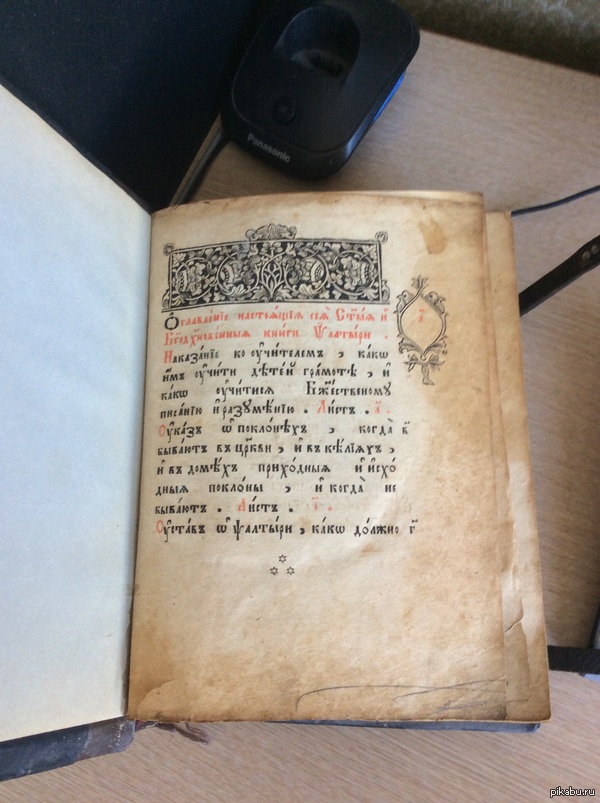 Panasonic
Ѻглавле́нїе настоѧ́щїѧ сеѧ̀ Ст҃ы́ѧ и҆
Бг҃одх҃нове́нныѧ кни́ги Ѱалты́ри .
Наказа́нїе ко ᲂу҆чи́телемъ , ка́кѡ
и҆́мъ ᲂу҆чи́ти дѣте́й гра́мотѣ , и҆
ка́кѡ ᲂу҆чи́тисѧ Бж҃е́ственому
писа́нїю и҆ разꙋмѣ́нїю . Ли́стъ . а҃ .
Оу҆ка́зъ ѡ҆ покло́нѣхъ , когда̀ в҆
быва́ютъ въ цр҃кви , и҆ въ ке́лїѧхъ ,
и҆ въ домѣ́хъ прихо́дныѧ и҆ и҆схо́
дныѧ покло́ны , и҆ когда̀ не
быва́ютъ . Ли́стъ . і҃ .
Оу҆ста́въ ѡ҆ ѱалты́ри , ка́кѡ до́лжно
а҃
pikabu.ru